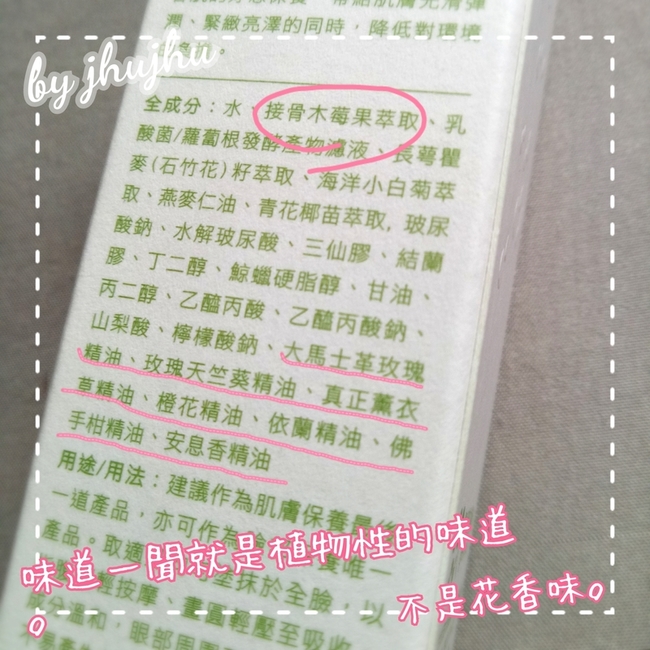 by jhujhu
潤、緊緻亮澤的同時，降低對環境
全成分：水、接骨木莓果萃取、乳
酸菌/蘿蔔根發酵產物濾液、長萼瞿
麥(石竹花)籽萃取、海洋小白菊萃
取、燕麥仁油、青花椰苗萃取, 玻尿
酸鈉、水解玻尿酸、三仙膠、結蘭
膠、丁二醇、鯨蠟硬脂醇、甘油、
丙二醇、乙醯丙酸、乙醯丙酸鈉、
山梨酸、檸檬酸鈉、大馬士革玫瑰
精油、玫瑰天竺葵精油、真正薰衣
草精油、橙花精油、依蘭精油、佛
手柑精油、安息香精油
用途/用法：建議作為肌膚保養最後
一道產品，亦可作為
唯一
產品。取適
塗抹於全臉，以
按摩、畫圓輕壓至吸收
味道一聞就是植物性的味道
不是花香味。